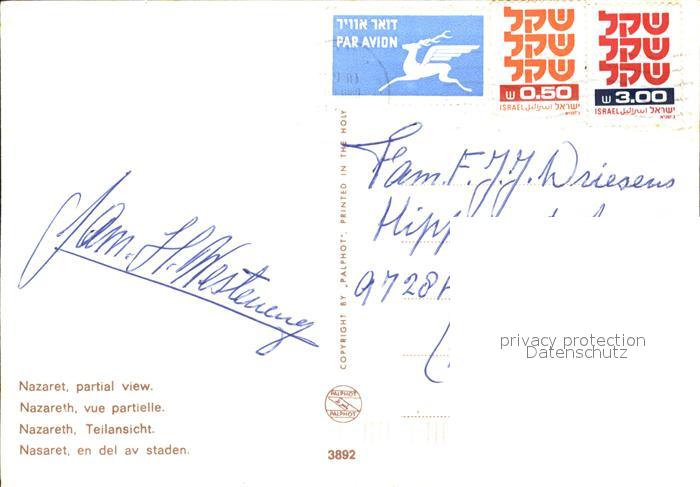 דואר אוויר
PAR AVION
שקל
שקל
שקל
ש 0.50
ISRAEL اسرائيل ישראל
שקל
שקל
שקל
ש 3.00
ISRAEL اسرائيل ישראל
Fam. F. J. J. Driesens
9728
Fam. H. Westeneng
privacy protection
Datenschutz
COPYRIGHT BY „PALPHOT", PRINTED IN THE HOLY
PALPHOT
PALPHOT
Nazaret, partial view.
Nazareth, vue partielle.
Nazareth, Teilansicht.
Nasaret, en del av staden.
3892